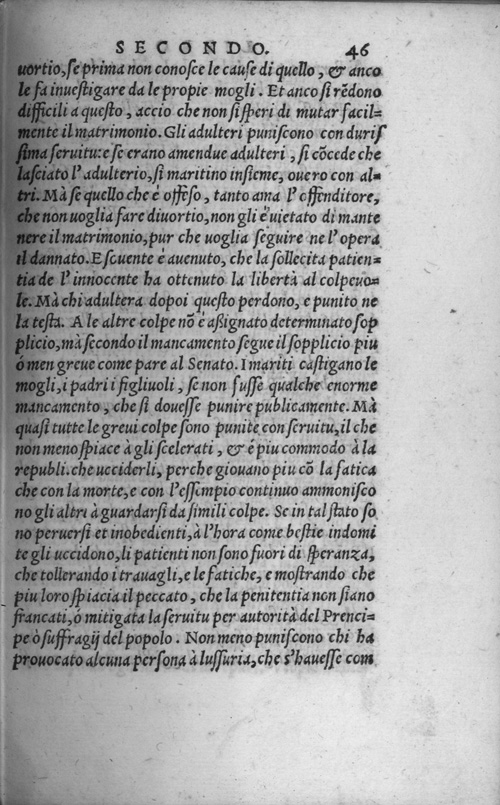 SECONDO. 46
uortio, se prima non conosce le cause di quello, & anco
le fa inuestigare da le propie mogli. Et anco si rēdono
difficili a questo, accio che non si speri di mutar facil=
mente il matrimonio. Gli adulteri puniscono con duris
sima seruitu: e se erano amendue adulteri, si cōcede che
lasciato l'adulterio, si maritino insieme, ouero con al=
tri. Mà se quello che é offeso, tanto ama l'offenditore,
che non uoglia fare diuortio, non gli é uietato di mante
nere il matrimonio, pur che uoglia seguire ne l'opera
il dannato. E souente é auenuto, che la sollecita patien=
tia de l'innocente ha ottenuto la libertà al colpeuo=
le. Mà chi adultera dopoi questo perdono, e punito ne
la testa. A le altre colpe nō é assignato determinato sop
plicio, mà secondo il mancamento segue il sopplicio piu
ó men greue come pare al Senato. I mariti castigano le
mogli, i padri i figliuoli, se non fusse qualche enorme
mancamento, che si douesse punire publicamente. Mà
quasi tutte le greui colpe sono punite con seruitu, il che
non meno spiace à gli scelerati, & é piu commodo à la
republi. che ucciderli, perche giouano piu cō la fatica
che con la morte, e con l'essimpio continuo ammonisco
no gli altri à guardarsi da simili colpe. Se in tal stato so
no peruersi et inobedienti, à l'hora come bestie indomi
te gli uccidono, li patienti non sono fuori di speranza,
che tollerando i trauagli, e le fatiche, e mostrando che
piu loro spiacia il peccato, che la penitentia non siano
francati, ó mitigata la seruitu per autorità del Prenci=
pe ò suffragij del popolo. Non meno puniscono chi ha
prouocato alcuna persona à lussuria, che s'hauesse com